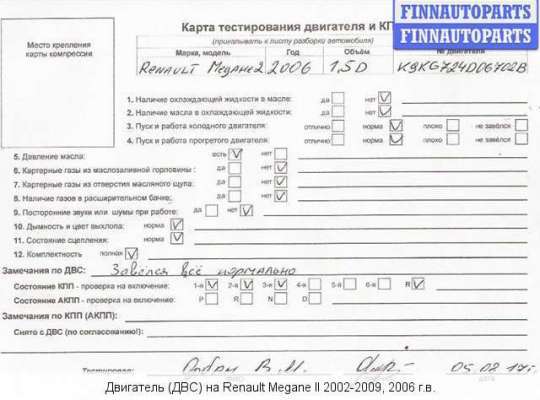 FINNAUTOPARTS
FINNAUTOPARTS
Карта тестирования двигателя и КП
(прикалывать к листу разборки автомобиля)
Место крепления карты компрессии
Марка, модель Год Объём № двигателя
Renault Megane 2 2006 1,5D K9KG724D067028
1. Наличие охлаждающей жидкости в масле: да нет
2. Наличие масла в охлаждающей жидкости: да нет
3. Пуск и работа холодного двигателя: отлично норма плохо не завёлся
4. Пуск и работа прогретого двигателя: отлично норма плохо не завёлся
5. Давление масла: есть нет
6. Картерные газы из маслозаливной горловины: да нет
7. Картерные газы из отверстия масляного щупа: да нет
8. Наличие газов в расширительном бачке: да нет
9. Посторонние звуки или шумы при работе: да нет
10. Дымность и цвет выхлопа: норма
11. Состояние сцепления: норма
12. Комплектность полная
Замечания по ДВС: Завелся всё нормально
Состояние КПП - проверка на включение: 1-я 2-я 3-я 4-я 5-я 6-я R
Состояние АКПП - проверка на включение: P R N D
Замечания по КПП (АКПП):
Снято с ДВС (по согласованию!):
Тестировал: В.И. 05.02.17г.
Двигатель (ДВС) на Renault Megane II 2002-2009, 2006 г.в.